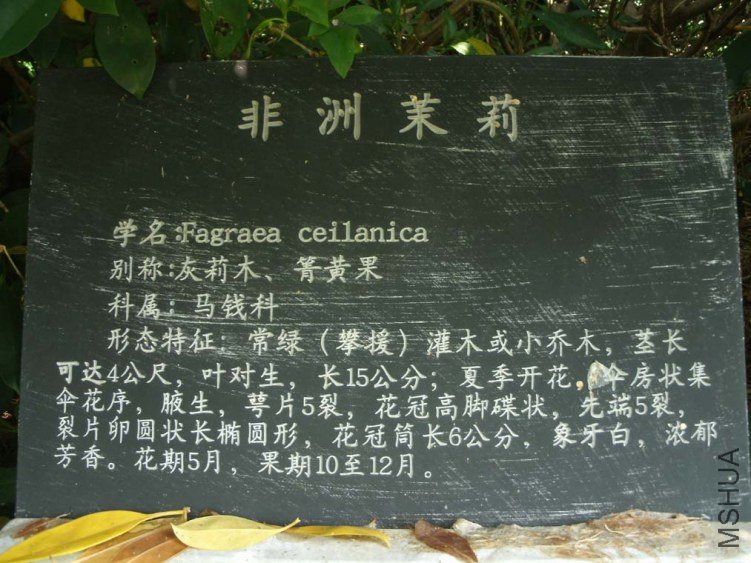 非洲茉莉
学名:Fagraea ceilanica
别称:灰莉木、箐黄果
科属: 马钱科
形态特征: 常绿（攀援）灌木或小乔木，茎长
可达4公尺，叶对生，长15公分；夏季开花，伞房状集
伞花序，腋生，萼片5裂，花冠高脚碟状，先端5裂，
裂片卵圆状长椭圆形，花冠筒长6公分，象牙白，浓郁
芳香。花期5月，果期10至12月。
MSHUA